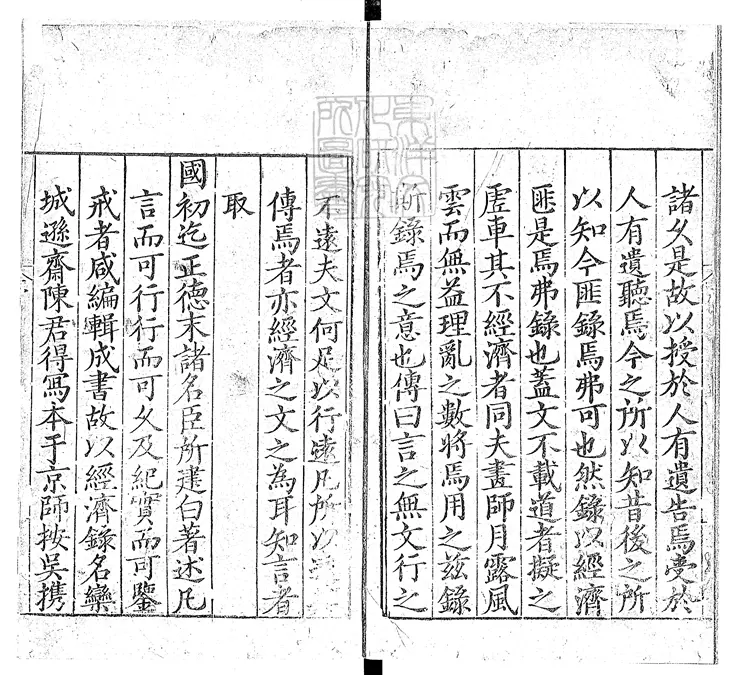 諸久是故以授於人有遺告焉受於
人有遺聽焉今之所以知昔後之所
以知今匪錄焉弗可也然錄以經濟
匪是焉弗錄也蓋文不載道者擬之
虛車其不經濟者同夫畫師月露風
雲而無益理亂之數將焉用之茲錄
錄焉之意也傳曰言之無文行之
不遠夫文何足以行遠凡所以
傳焉者亦經濟之文之為耳知言者
取
國初迄正德末諸名臣所建白著述凡
言而可行行而可久及紀實而可鑒
戒者咸編輯成書故以經濟錄名欒
城遜齋陳君得寫本于京師按吳携